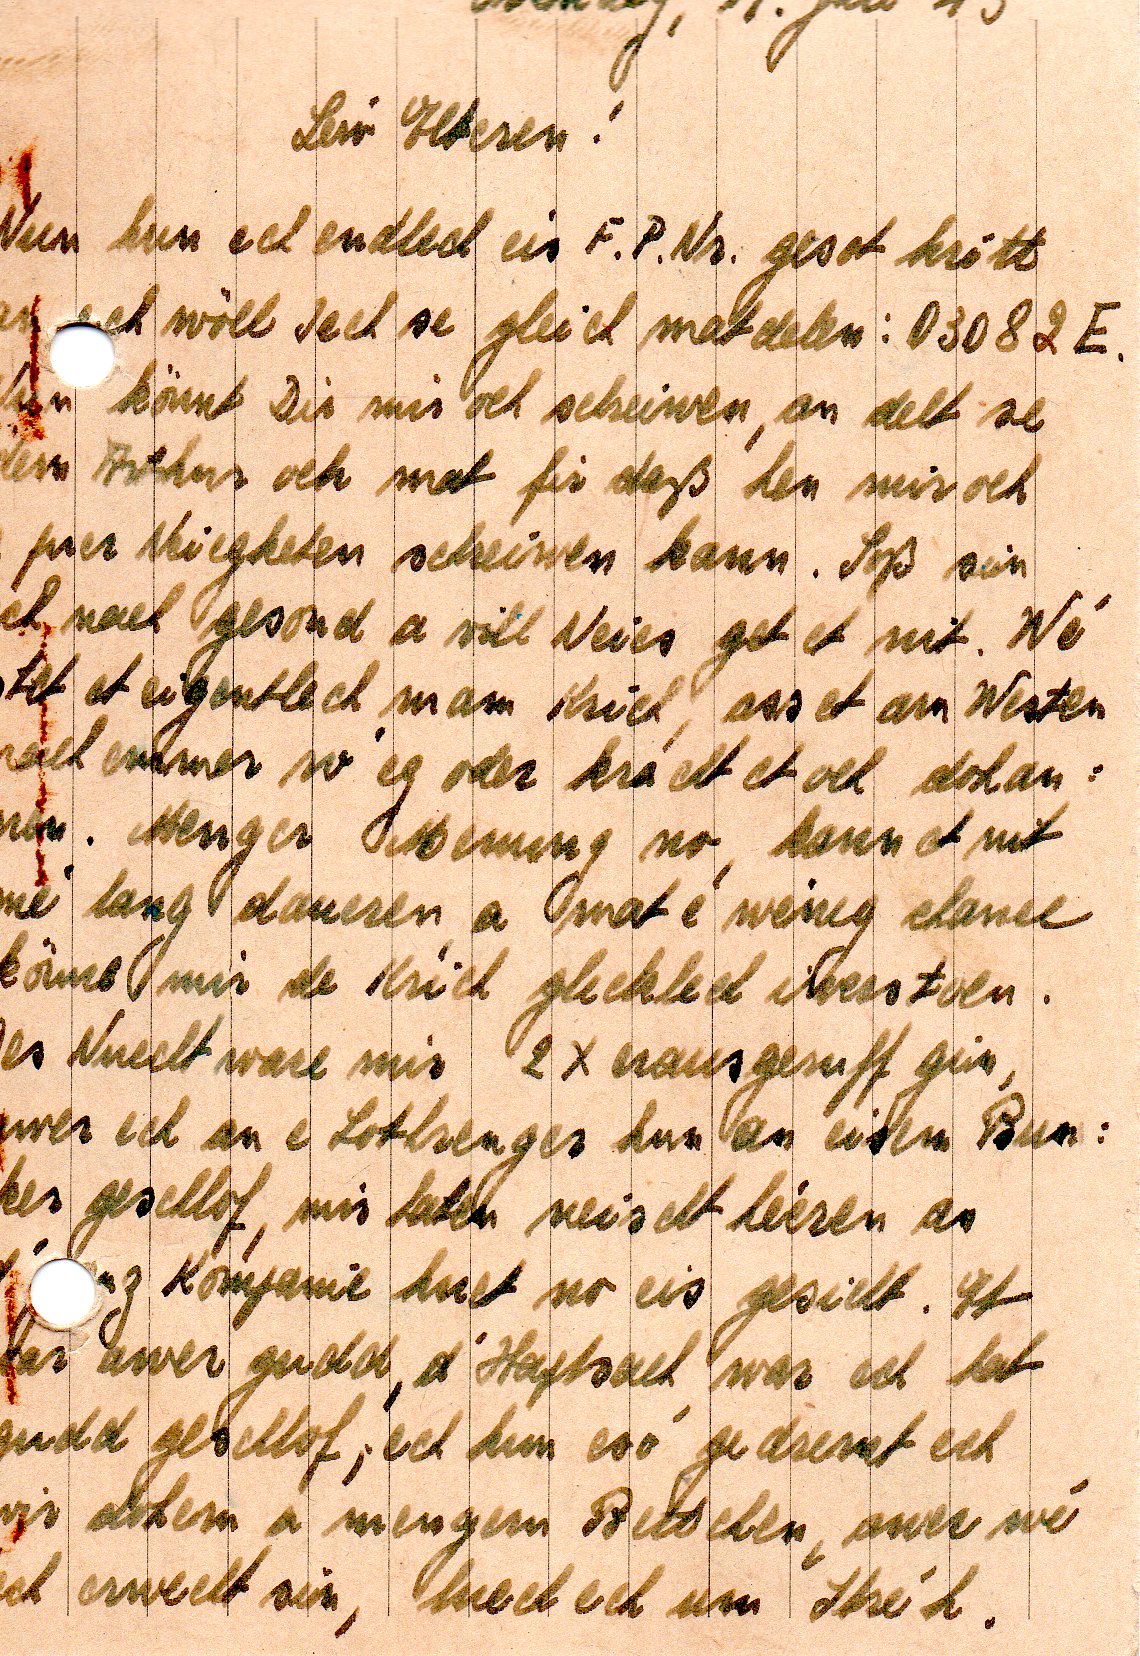 Juli 43
Leiw Elteren!
Nun hun ech endlech eis F.P.Nr. gesot kritt
an ech wöll Iech se gleich matdelen: 03082 E.
Nun könnt Dir mir och schreiwen, an delt se
dem Arthur och mat fir daß hen mir och
puer Neiegketen schreiwen kann. Soß sin
ech nach gesond a vill Neies get et nit. Wé
stét et eigentlech mam Krich, ass et am Westen
nach emmer rvég oder kréckt et och dohan:
nen. Menger Menung no, kann et nit
mé lang daueren, a mat e wéneg chance
könne mir de Krich glecklech iwerstoen.
Des Nuecht ware mir 2 x erausgeruff gin,
awer ech an e Lothrenger hun an eisem Bun:
ker geschlof, mir haten neischt héieren an
d'ganz Kompanie huet no eis gesicht. Et
war awer gudd, d'Haptsach war ech hat
gudd geschlof, ech hun esó gedremt ech
wir dohem a mengem Bettchen, awer wé
ech erwecht sin, luech ech um Stréh.